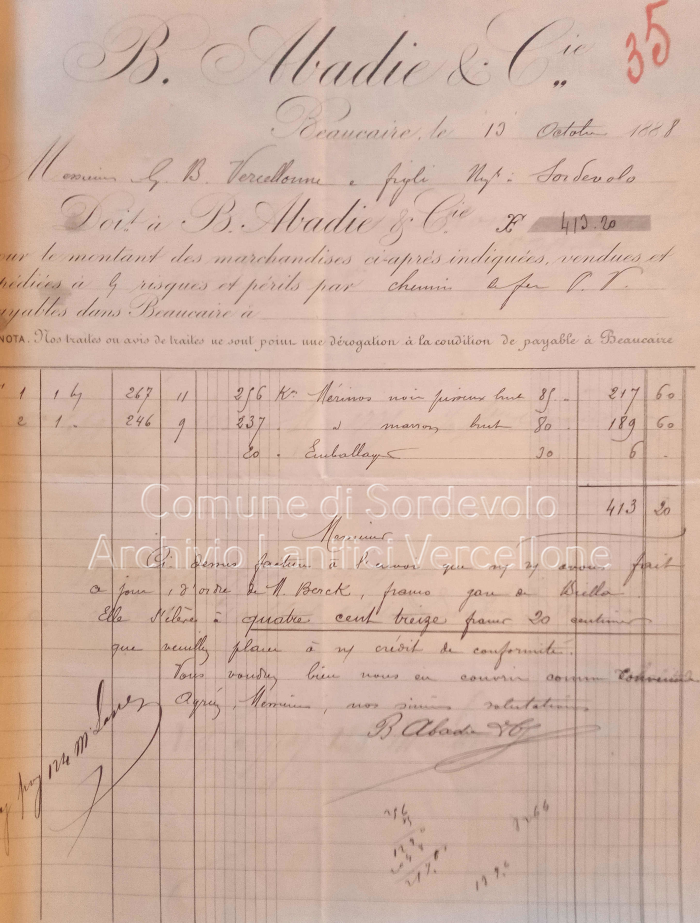 35
B. Abadie & Cie
Beaucaire, le 13 Octobre 1888
Messieurs G. B. Vercellonne e figli Sordevolo
Doit à B. Abadie & Cie F 413.20
our le montant des marchandises ci-après indiquées, vendues et
pédiées à risques et périls par chemin de fer P. V.
ayables dans Beaucaire à
NOTA. Nos traites ou avis de traites ne sont point une dérogation à la condition de payable à Beaucaire
1 1 267 11 256 Kos Mérinos noir brut 85 - 217 60
2 1 . 246 9 237 . " marron brut 80 . 189 60
20 . Emballage 30 6 .
413 20
Comune di Sordevolo
Messieurs
Archivio Lanifici Vercellone
Ci dessus facture à l'envoi que avons fait
a jour, d'ordre de M. Berck, franco gare de Biella.
Elle s'élève à quatre cent treize francs 20 centimes
que veuillez placer à crédit de conformité.
Vous voudrez bien nous en couvrir comme convenu
Agréez, Messieurs, nos sincères salutations
B Abadie & Cie